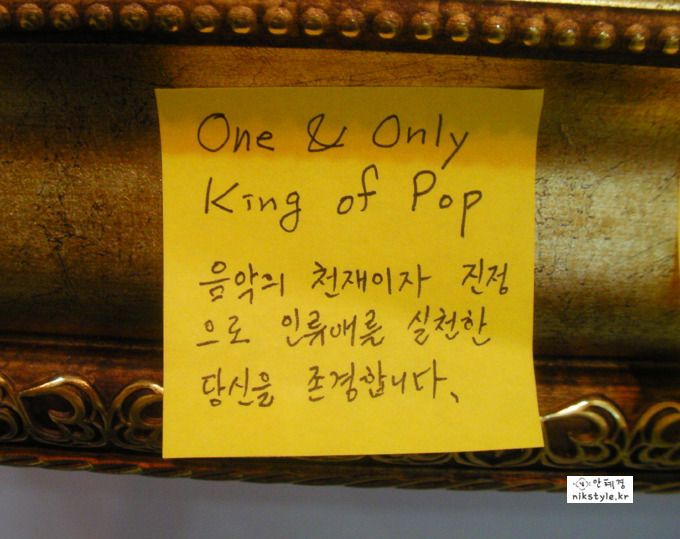 One & Only
King of Pop
음악의 천재이자 진정
으로 인류애를 실천한
당신을 존경합니다.
안혜경
nikstyle.kr